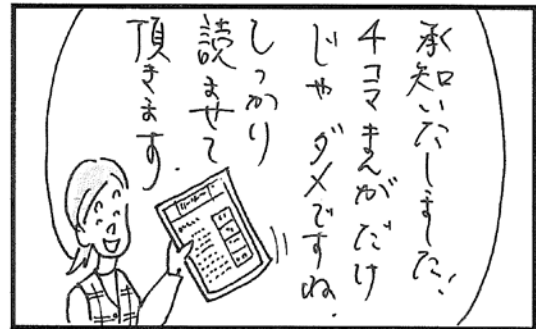 承知いたしました!
4コマまんがだけ
じゃダメですね.
しっかり
読ませて
頂きます.